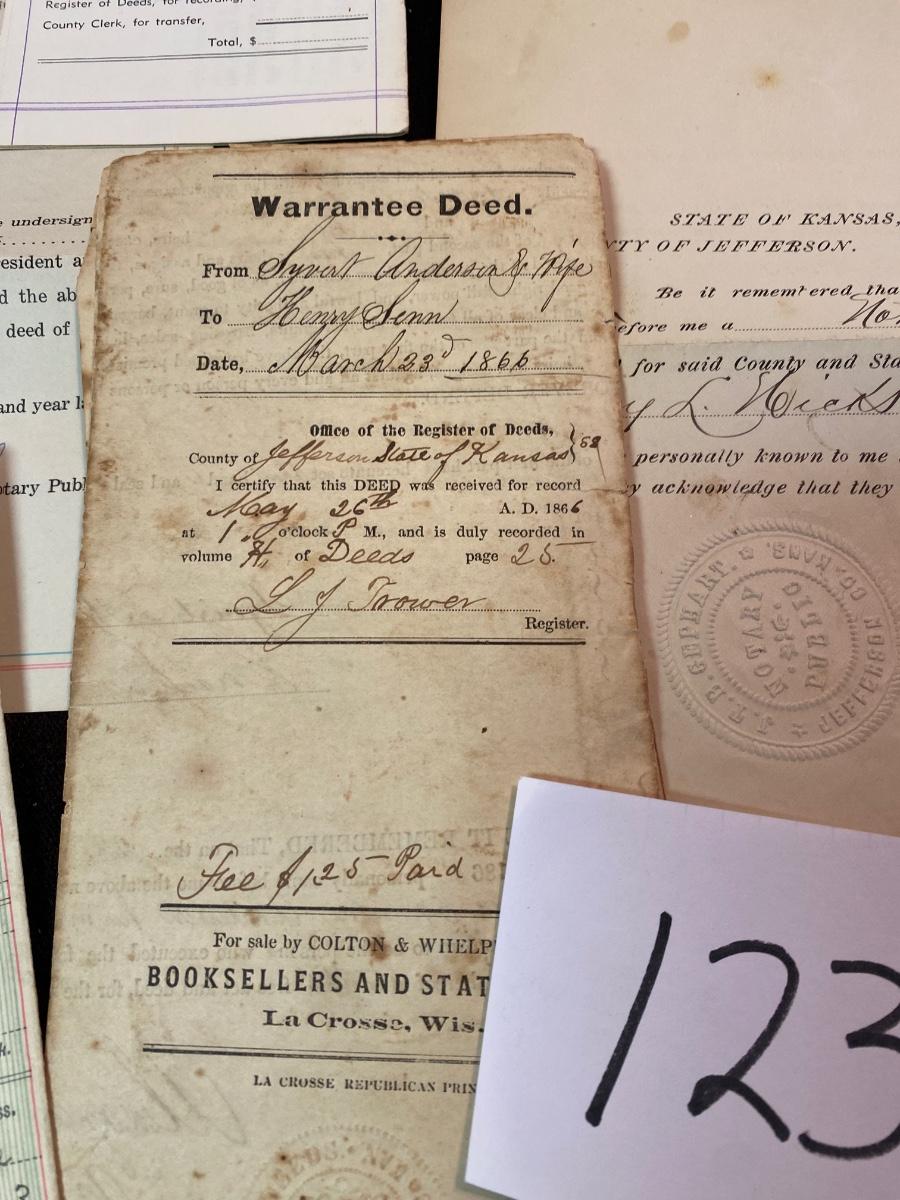 Register of Deeds, for recording,
County Clerk, for transfer,
Total, $
undersign
resident a
d the ab
deed of
and year l
otary Publ
Warrantee Deed.
From Syvert Anderson & Wife
To Henry Senn
Date, March 23d 1866
Office of the Register of Deeds,
County of Jefferson State of Kansas } 52
I certify that this DEED was received for record
May 26th A. D. 1866
at 1. o'clock P M., and is duly recorded in
volume H, of Deeds page 25.
L J Trower
Register.
Fee $1.25 Paid
For sale by COLTON & WHELP
BOOKSELLERS AND STAT
La Crosse, Wis.
LA CROSSE REPUBLICAN PRIN
STATE OF KANSAS,
TY OF JEFFERSON.
Be it remembered tha
efore me a No
for said County and Sta
y L. Hicks
personally known to me
y acknowledge that they
J. T. B. GEPHART.
NOTARY PUBLIC
JEFFERSON CO. KANS.
123